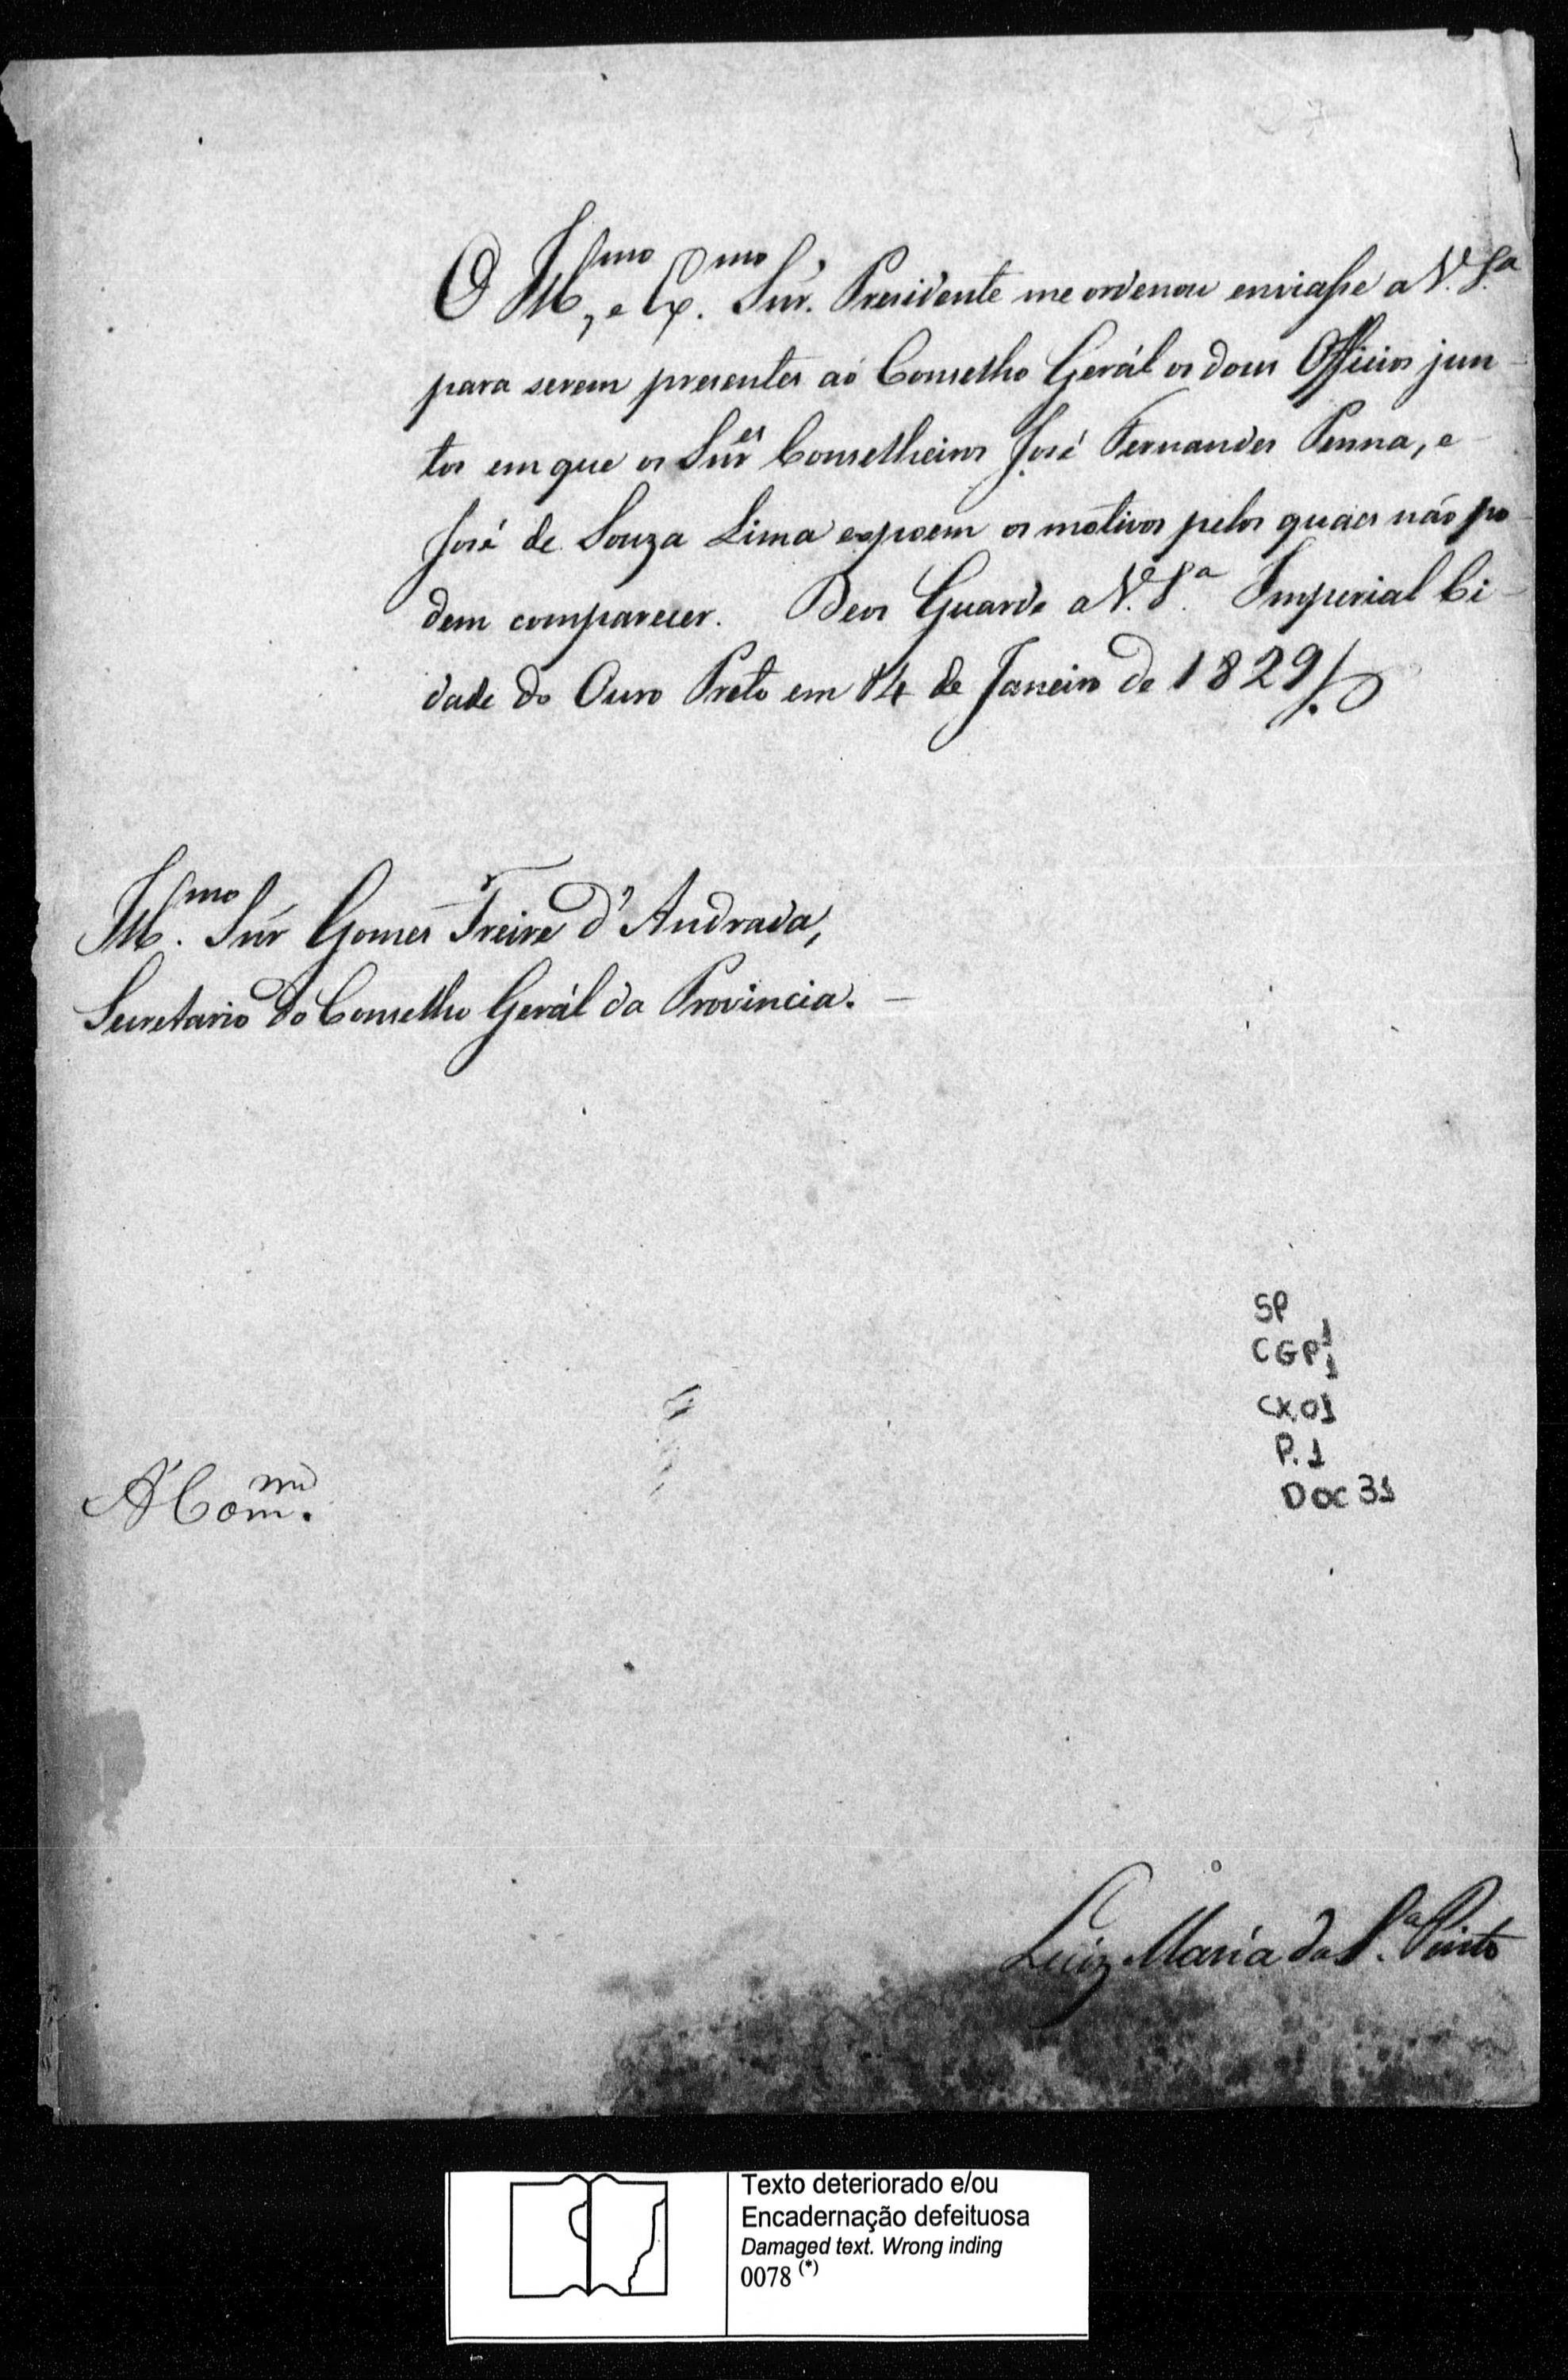 O Ill.mo, e Ex.mo Snr. Presidente me ordenou enviasse a V. S.a
para serem presentes ao Conselho Gerál os dous Officios jun-
tos em que os Snr.es Conselheiros José Fernandes Penna, e
José de Souza Lima expoem os motivos pelos quaes não po-
dem comparecer. Deos Guarde a V. S.a Imperial Ci-
dade do Ouro Preto em 14 de Janeiro de 1829
Ill.mo Snr Gomes Freire d'Andrada,
Secretario do Conselho Gerál da Provincia.
SP
CGP 1
1
CX.01
P. 1
Doc 31
A' Com.m
Luiz Maria da S.a Pinto
Texto deteriorado e/ou
Encadernação defeituosa
Damaged text. Wrong inding
0078 (*)